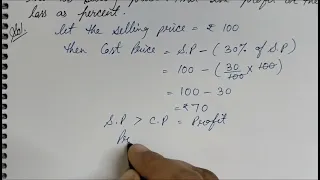 loss as percent.
Sol: let the selling price = ₹ 100
then Cost Price = S.P - (30% of S.P)
= 100 - (30/100 × 100)
= 100 - 30
= ₹70
S.P > C.P = Profit